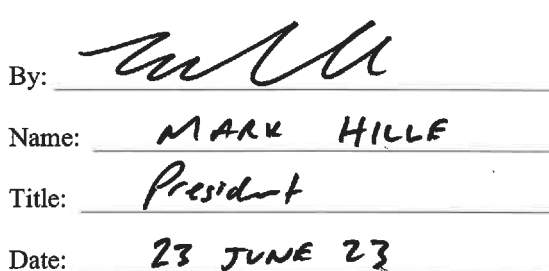 By:
Name: MARK HILLE
Title: President
Date: 23 JUNE 23